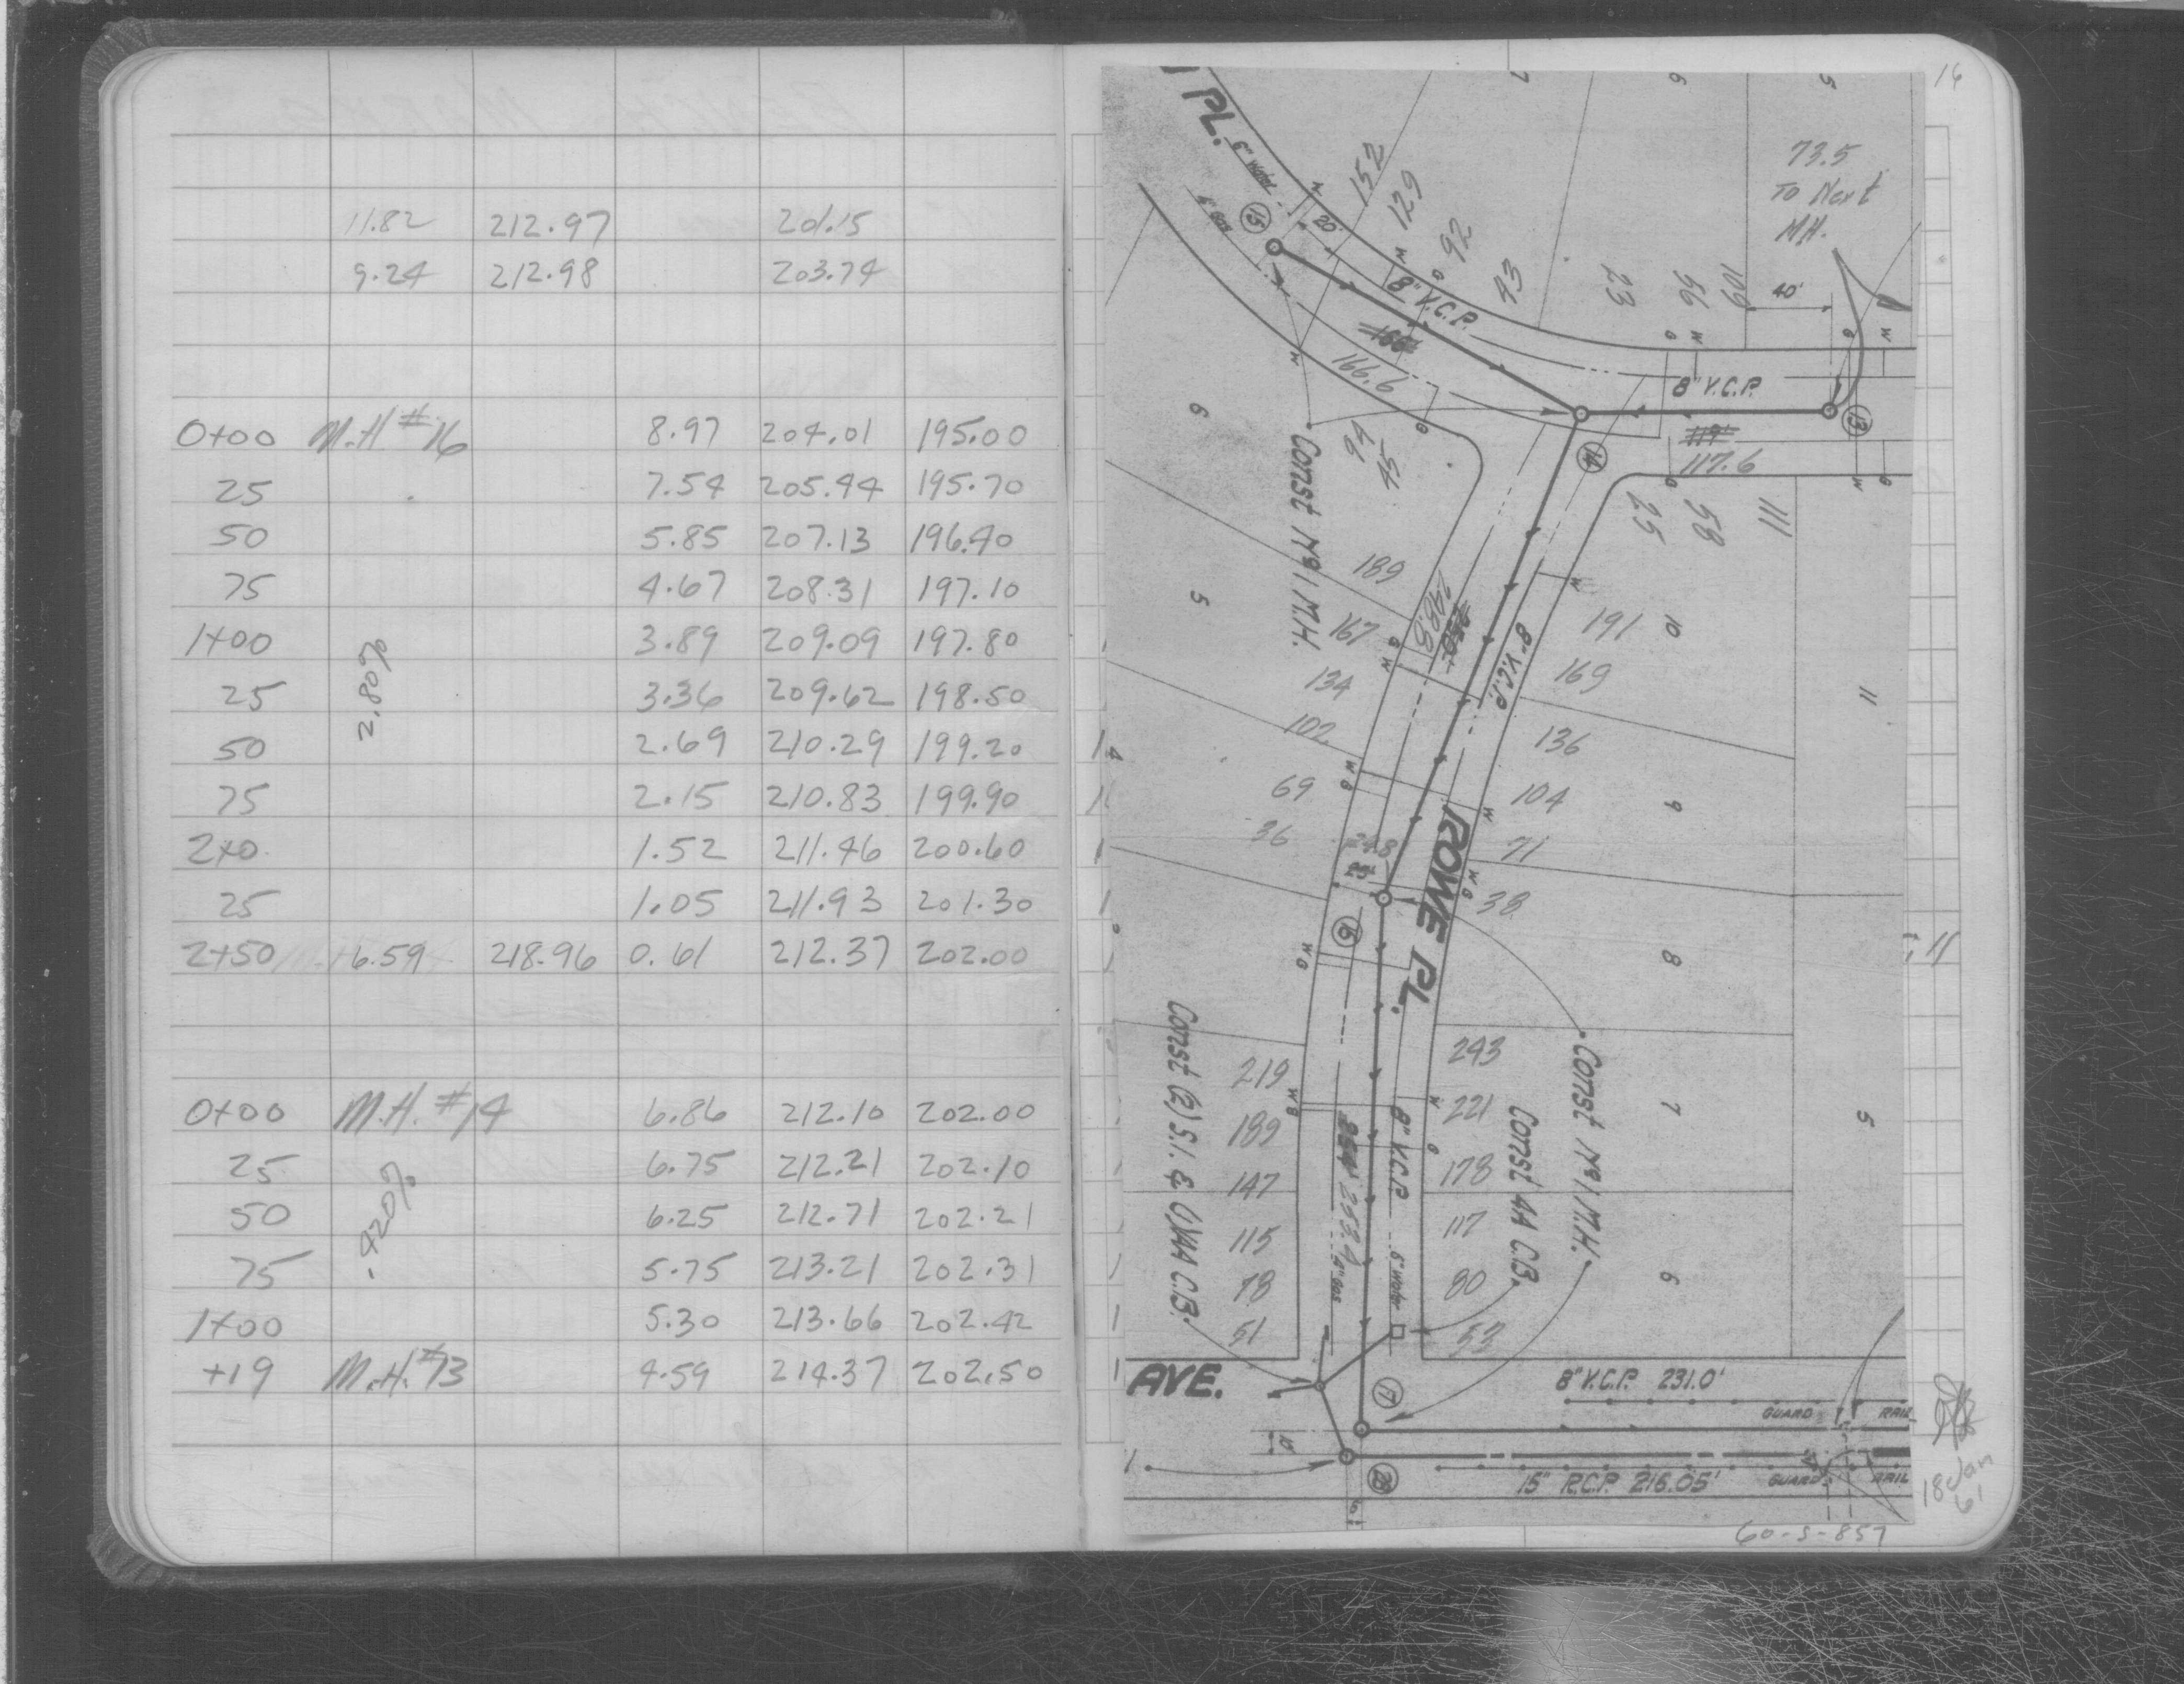 11.82 212.97 201.15
9.24 212.98 203.74
0+00 M.H #16 8.97 204.01 195.00
25 7.54 205.44 195.70
50 5.85 207.13 196.40
75 4.67 208.31 197.10
1+00 3.89 209.09 197.80
2.80%
25 3.36 209.62 198.50
50 2.69 210.29 199.20
75 2.15 210.83 199.90
2+0 1.52 211.46 200.60
25 1.05 211.93 201.30
2+50 6.59 218.96 0.61 212.37 202.00
0+00 M.H. #14 6.86 212.10 202.00
25 6.75 212.21 202.10
.420%
50 6.25 212.71 202.21
75 5.75 213.21 202.31
1+00 5.30 213.66 202.42
+19 M.H. #13 4.59 214.37 202.50
16
PL.
6" Water
6" Gas
7
6
5
73.5
To Next
M.H.
15
20'
152
129
92
43
23
56
109
40'
8" V.C.P.
166'
166.6
8" V.C.P.
119'
117.6
13
14
6
94
45
Const Nº1 M.H.
25
58
111
5
189
167
134
102
69
36
250'
248.8
8" V.C.P.
191
169
136
104
71
38
10
11
9
ROWE PL.
16
8
Const (2) S.I. & (1)4A C.B.
219
189
147
115
78
51
254' 253.4
6" Gas
8" V.C.P.
6" Water
243
221
178
117
80
53
Const 4A C.B.
Const Nº1 M.H.
7
5
6
AVE.
17
8" V.C.P. 231.0'
GUARD RAIL
10'
28
15" R.C.P. 216.05'
GUARD RAIL
18 Jan
61
60-S-857